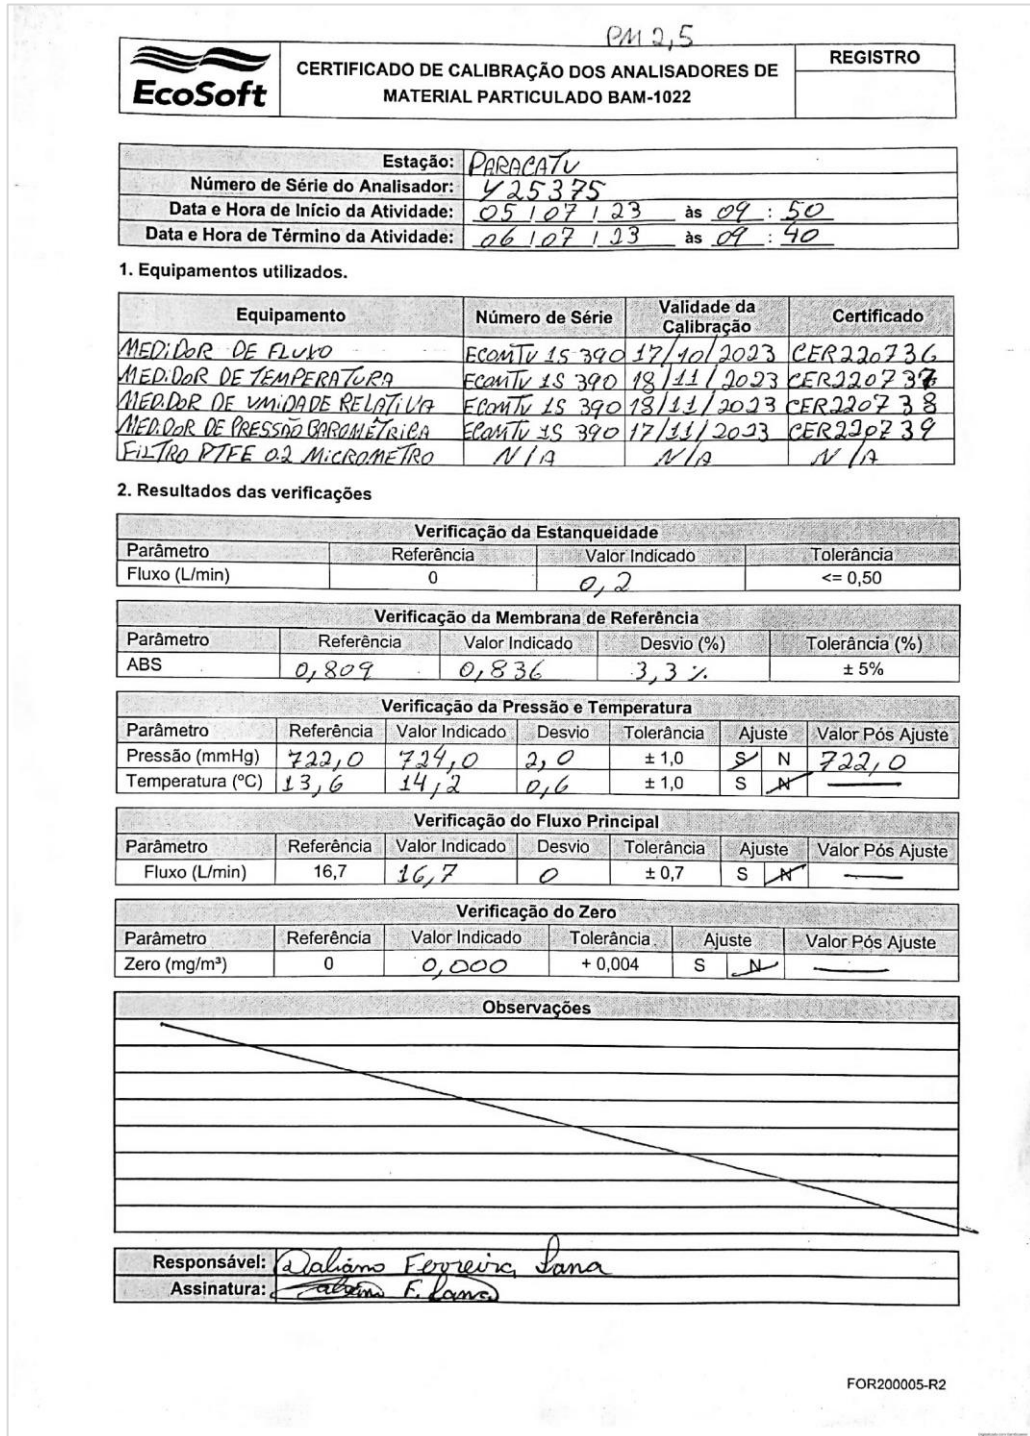 PM 2,5
EcoSoft
CERTIFICADO DE CALIBRAÇÃO DOS ANALISADORES DE
MATERIAL PARTICULADO BAM-1022
REGISTRO
Estação: PARACATU
Número de Série do Analisador: Y25375
Data e Hora de Início da Atividade: 05/07/23 às 09:50
Data e Hora de Término da Atividade: 06/07/23 às 09:40
1. Equipamentos utilizados.
Equipamento Número de Série Validade da Calibração Certificado
MEDIDOR DE FLUXO ECOMTV 1S 390 17/10/2023 CER220736
MEDIDOR DE TEMPERATURA ECOMTV 1S 390 18/11/2023 CER220737
MEDIDOR DE UMIDADE RELATIVA ECOMTV 1S 390 18/11/2023 CER220738
MEDIDOR DE PRESSÃO BAROMÉTRICA ECOMTV 1S 390 17/11/2023 CER220739
FILTRO PTFE 0.2 MICROMETRO N/A N/A N/A
2. Resultados das verificações
Verificação da Estanqueidade
Parâmetro Referência Valor Indicado Tolerância
Fluxo (L/min) 0 0,2 <= 0,50
Verificação da Membrana de Referência
Parâmetro Referência Valor Indicado Desvio (%) Tolerância (%)
ABS 0,809 0,836 3,3 % ± 5%
Verificação da Pressão e Temperatura
Parâmetro Referência Valor Indicado Desvio Tolerância Ajuste Valor Pós Ajuste
Pressão (mmHg) 722,0 724,0 2,0 ± 1,0 S N 722,0
Temperatura (ºC) 13,6 14,2 0,6 ± 1,0 S N
Verificação do Fluxo Principal
Parâmetro Referência Valor Indicado Desvio Tolerância Ajuste Valor Pós Ajuste
Fluxo (L/min) 16,7 16,7 0 ± 0,7 S N
Verificação do Zero
Parâmetro Referência Valor Indicado Tolerância Ajuste Valor Pós Ajuste
Zero (mg/m³) 0 0,000 + 0,004 S N
Observações
Responsável: Daliano Ferreira Lana
Assinatura: F. Lana
FOR200005-R2